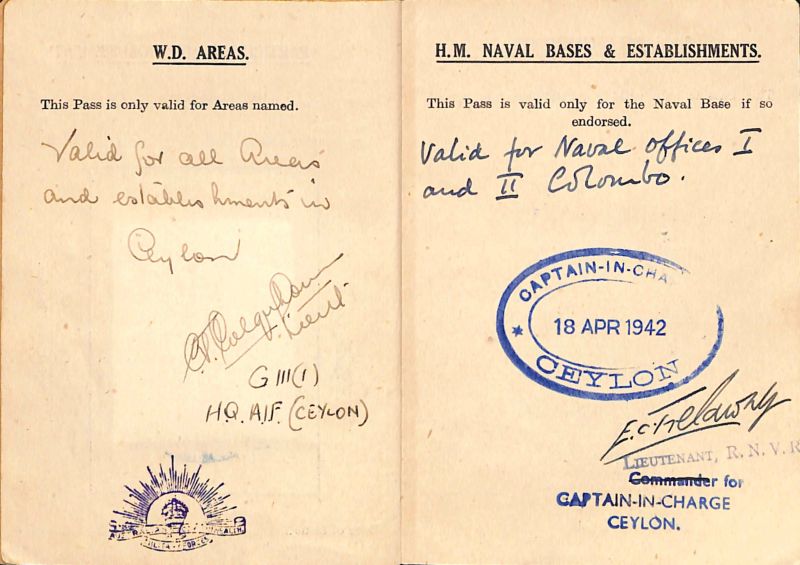 W.D. AREAS.
This Pass is only valid for Areas named.
Valid for all Areas
and establishments in
Ceylon
Lieut.
G III(1)
H.Q. A.I.F. (CEYLON)
AUSTRALIAN COMMONWEALTH
MILITARY FORCES
H.M. NAVAL BASES & ESTABLISHMENTS.
This Pass is valid only for the Naval Base if so
endorsed.
Valid for Naval offices I
and II Colombo.
CAPTAIN-IN-CHA
* 18 APR 1942
CEYLON
E.C. Trelawny
LIEUTENANT, R.N.V.R
Commander for
CAPTAIN-IN-CHARGE
CEYLON.